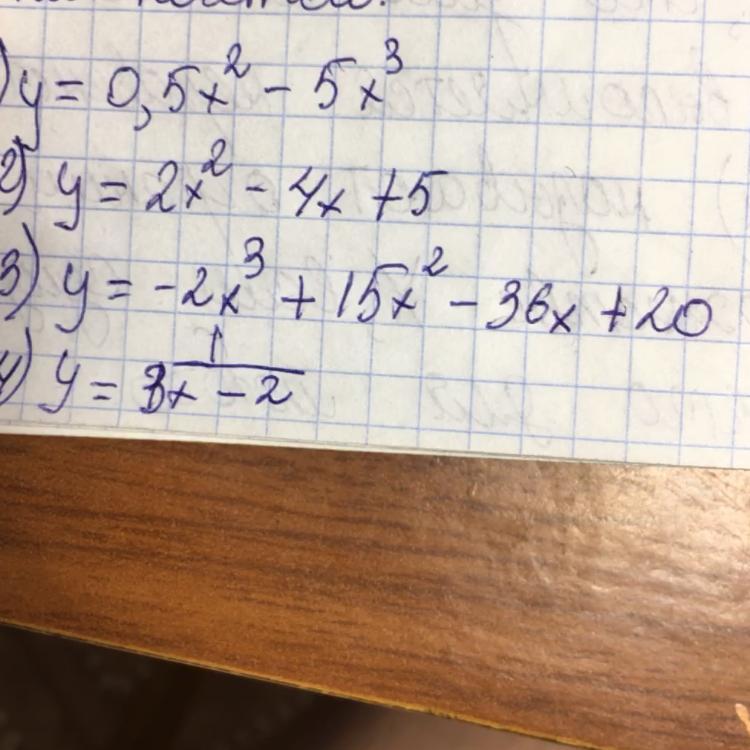 ) y = 0,5x² - 5x³
2) y = 2x² - 4x + 5
3) y = -2x³ + 15x² - 36x + 20
4) y = 1/(3x - 2)